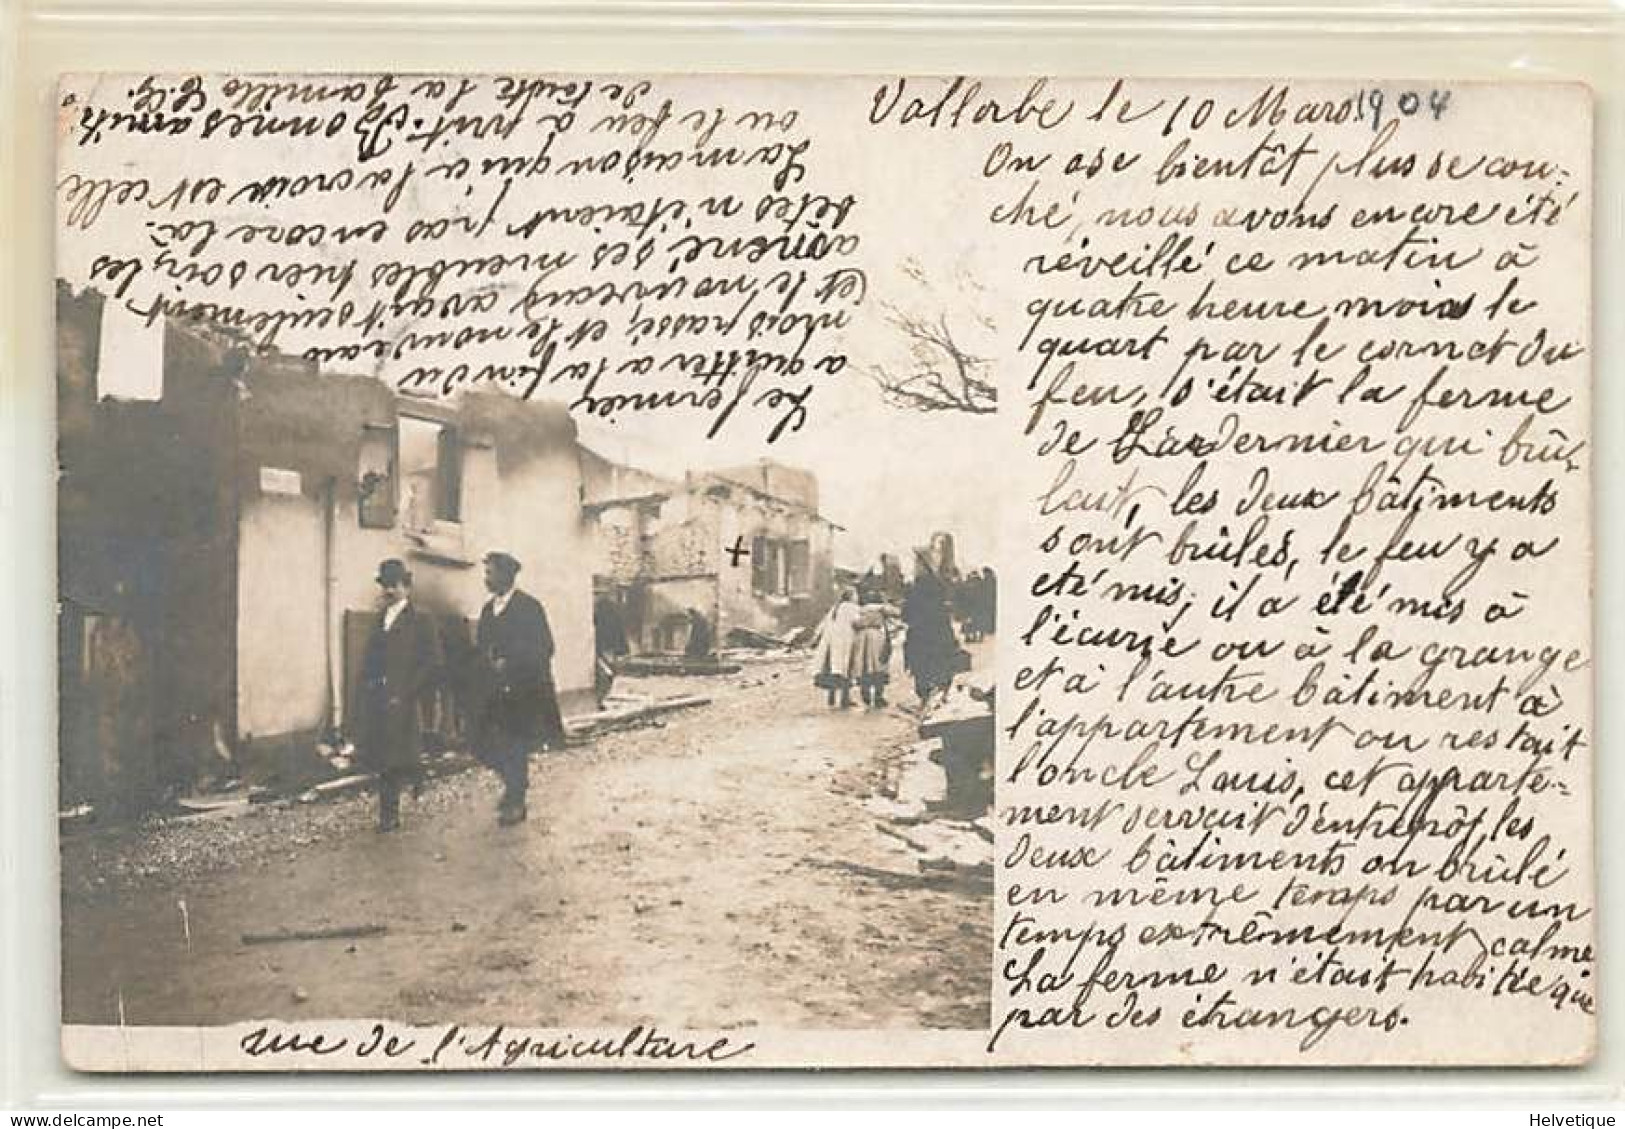 Vallorbe le 10 Mars 1904
On ose bientôt plus se cou-
ché, nous avons encore été
réveillé ce matin à
quatre heure moins le
quart par le cornet du
feu, s'était la ferme
de Lardernier qui brû-
lait, les deux bâtiments
sont brûlés, le feu y a
été mis; il a été mis à
l'écurie ou à la grange
et à l'autre bâtiment à
l'appartement ou restait
l'oncle Louis, cet apparte-
ment servait d'entrepôt, les
deux bâtiments on brûlé
en même temps par un
temps extrêmement calme
La ferme n'était habitée que
par des étrangers.
Le fermier
a quitter a la fin du
mois passé, et le nouveau
(et le nouveau avait seulement
amené ses meubles hier soir, les
bêtes n'étaient pas encore là.
La maison qui à la croix est celle
ou le feu à prit. Bonnes amitiés
de toute la famille
rue de l'Agriculture
Helvetique